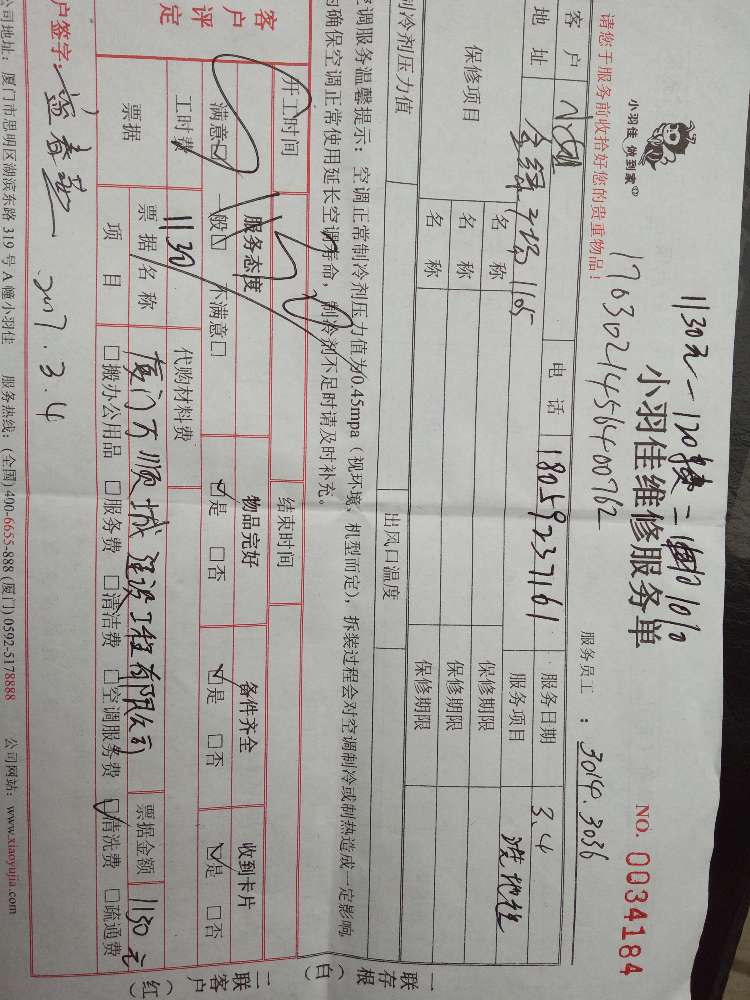 1130元-120
小羽佳 做到家
小羽佳维修服务单
NO. 0034184
请您于服务前收拾好您的贵重物品！
17030214564 00762
服务员工：3014.3036
客户 电话 18059237161 服务日期 3.4
地址 1105 服务项目 洗地毯
保修项目 名称 保修期限
名称 保修期限
名称 保修期限
制冷剂压力值 出风口温度
空调服务温馨提示：空调正常制冷剂压力值为0.45mpa（视环境，机型而定），拆装过程会对空调制冷或制热造成一定影响
确保空调正常使用延长空调寿命，制冷剂不足时请及时补充。
开工时间 结束时间
客户评定 服务态度 物品完好 备件齐全 收到卡片
满意☑ 一般□ 不满意□ ☑是 □否 ☑是 □否 ☑是 □否
工时费 1130 代购材料费
票据 票据名称 厦门万顺城建设工程有限公司 票据金额 1130元
项目 □搬办公用品 □服务费 □清洁费 □空调服务费 ☑清洗费 □疏通费
户签字： 2017.3.4
公司地址：厦门市思明区湖滨东路319号A幢小羽佳 服务热线：(全国)400-6655-888 (厦门)0592-5178888 公司网站：www.xiaoyujia.com
一联存根（白）
二联客户（红）